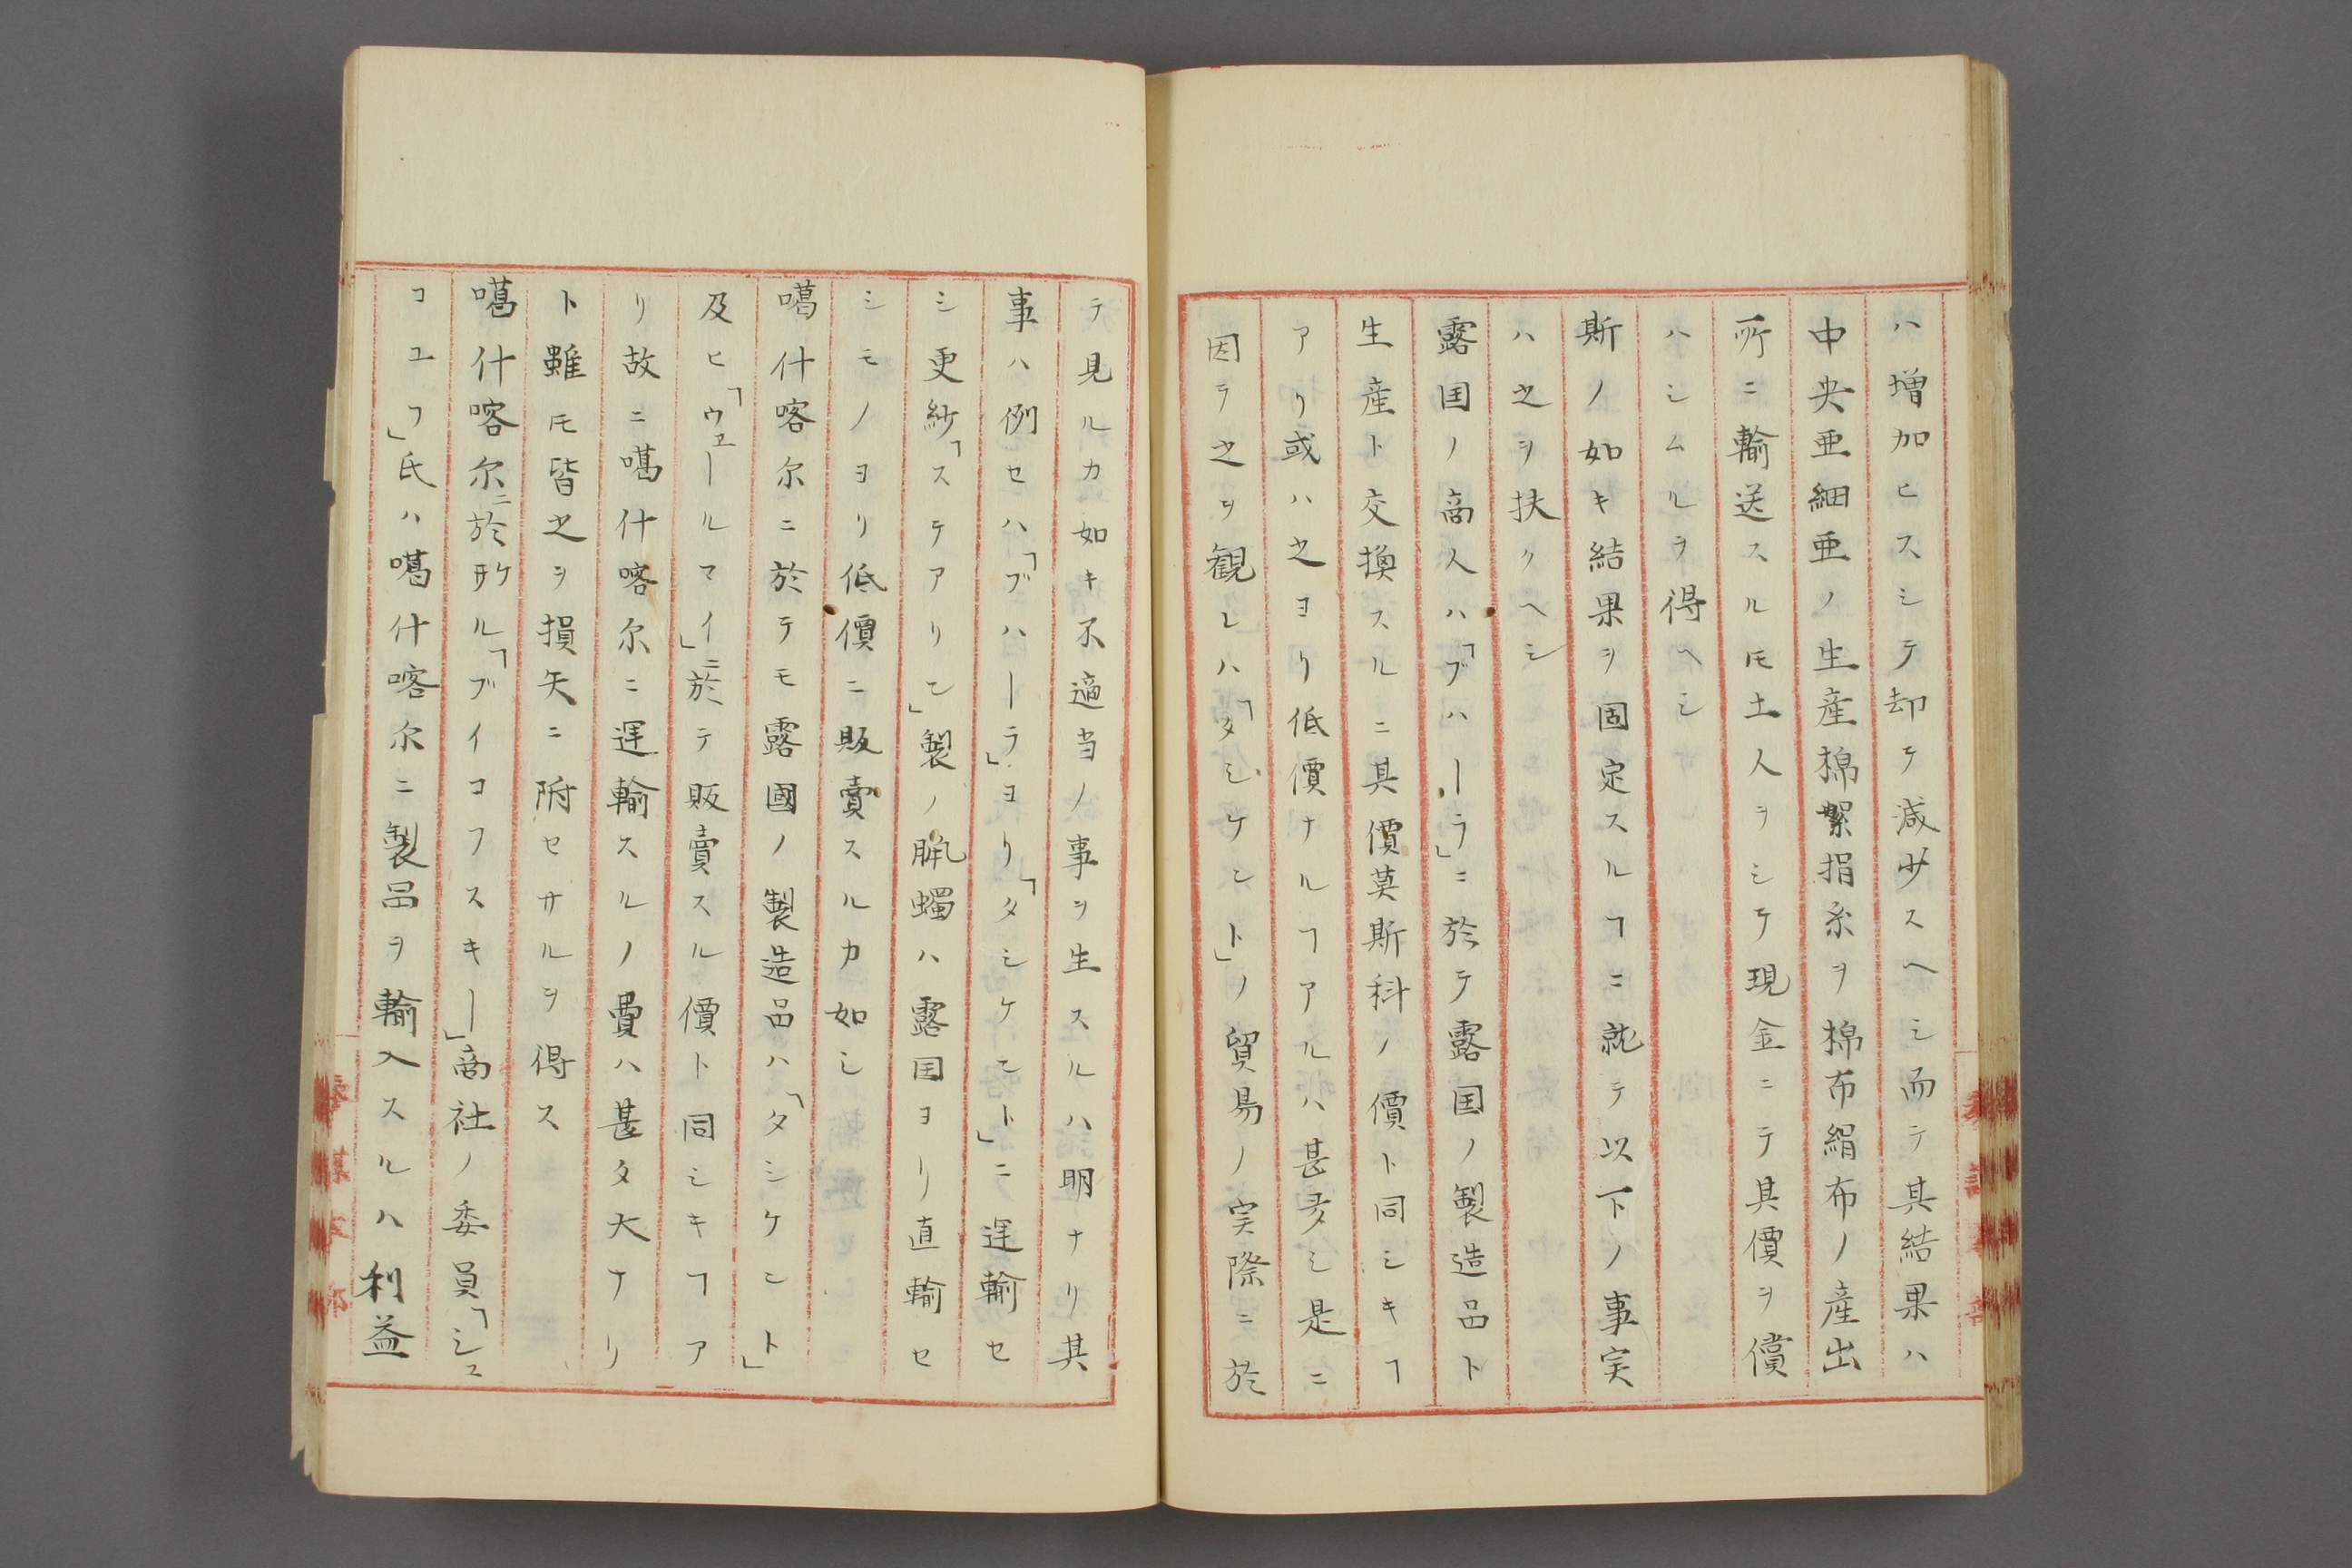 ハ増加セスシテ却テ減少スヘシ而テ其結果ハ
中央亜細亜ノ生産棉繋捐糸ヲ棉布絹布ノ産出
所ニ輸送スルモ土人ヲシテ現金ニテ其價ヲ償
ハシムルヲ得ヘシ
斯ノ如キ結果ヲ固定スルヿニ就テ以下ノ事実
ハ之ヲ扶クヘシ
露国ノ商人ハ「ブハーラ」ニ於テ露国ノ製造品ト
生産ト交換スルニ其價莫斯科ノ價ト同シキヿ
アリ或ハ之ヨリ低價ナルヿアルハ甚多シ是ニ
因テ之ヲ観レハ「タシケント」ノ貿易ノ実際ニ於
テ見ルカ如キ不適当ノ事ヲ生スルハ明ナリ其
事ハ例セハ「ブハーラ」ヨリ「タシケント」ニ運輸セ
シ更紗「ステアリン」製ノ脈蠋ハ露国ヨリ直輸セ
シモノヨリ低價ニ販賣スルカ如シ
噶什喀尔ニ於テモ露國ノ製造品ハ「タシケント」
及ヒ「ウエールマイ」ニ於テ販賣スル價ト同シキヿア
リ故ニ噶什喀尔ニ運輸スルノ費ハ甚タ大ナリ
ト雖モ皆之ヲ損失ニ附セサルヲ得ス
噶什喀尔ニ於ケル「ブイコフスキー」商社ノ委員「シユ
コユフ」氏ハ噶什喀尔ニ製品ヲ輸入スルハ利益